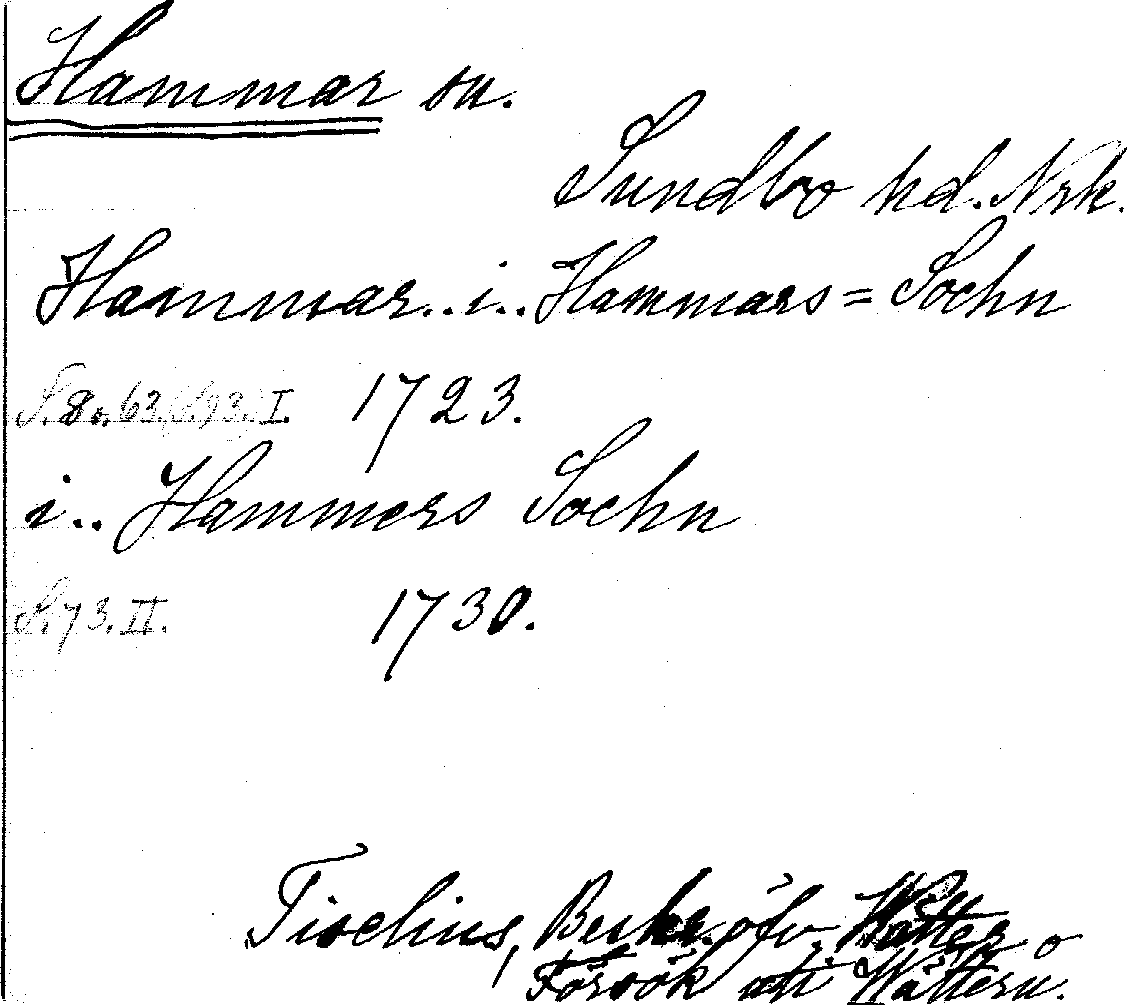 Hammar sn.
Sundbo hd. Nrk.
Hammar.. i.. Hammars=Sochn
S. 80. 63. (S. 93.) I. 1723.
i.. Hammers Sochn
S. 73. II. 1730.
Tiselius, Beskr. öfv. Wätter o
Försök att Wättern.